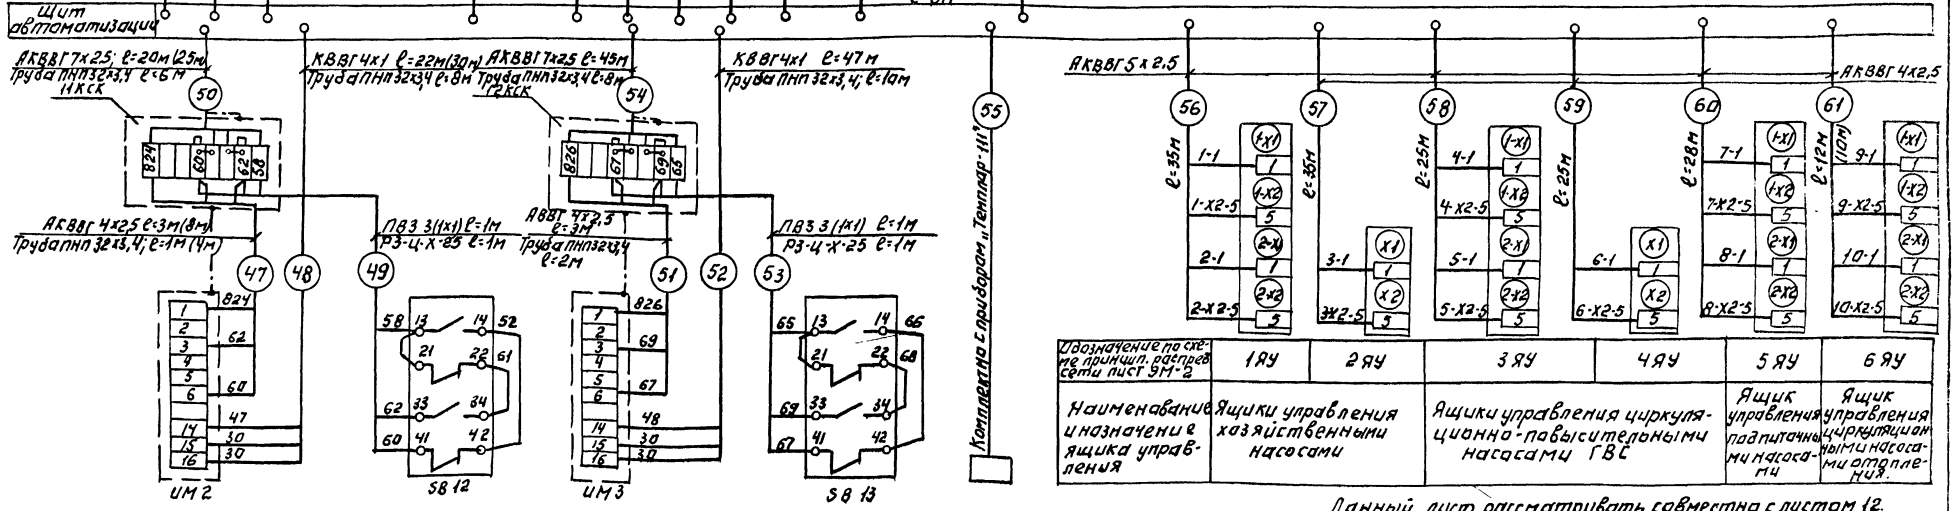 Щит
автоматизации
АКВВГ 7х2,5; ℓ=20м (25м)
Труба ПНП 32х3,4 ℓ=6м
11КСК
50
824
60
62
58
АКВВГ 4х2,5 ℓ=3м (8м)
Труба ПНП 32х3,4; ℓ=1м (4м)
47
48
49
КВВГ 4х1 ℓ=22м (30м)
Труба ПНП 32х3,4 ℓ=8м
ПВ3 3(1х1) ℓ=1м
РЗ-Ц-Х-25 ℓ=1м
1
2
3
4
5
6
14
15
16
824
62
60
47
30
30
ИМ2
58
13
14
52
21
22
61
62
33
34
60
41
42
SB 12
АКВВГ 7х2,5 ℓ=45м
Труба ПНП 32х3,4 ℓ=8м
12КСК
54
826
67
69
65
АВВГ 4х2,5
ℓ=3м
Труба ПНП 32х3,4
ℓ=2м
51
52
53
КВВГ 4х1 ℓ=47м
Труба ПНП 32х3,4; ℓ=10м
ПВ3 3(1х1) ℓ=1м
РЗ-Ц-Х-25 ℓ=1м
1
2
3
4
5
6
14
15
16
826
69
67
48
30
30
ИМ3
65
13
14
66
21
22
68
69
33
34
67
41
42
SB 13
55
Комплектна с прибором „Темплар-111”
АКВВГ 5х2,5
АКВВГ 4х2,5
56
ℓ=35м
1-1
1-Х1
1
1-Х2-5
1-Х2
5
2-1
2-Х1
1
2-Х2-5
2-Х2
5
57
ℓ=35м
3-1
Х1
1
3Х2-5
Х2
5
58
ℓ=25м
4-1
1-Х1
1
4-Х2-5
1-Х2
5
5-1
2-Х1
1
5-Х2-5
2-Х2
5
59
ℓ=25м
6-1
Х1
1
6-Х2-5
Х2
5
60
ℓ=28м
7-1
1-Х1
1
7-Х2-5
1-Х2
5
8-1
2-Х1
1
8-Х2-5
2-Х2
5
61
ℓ=12м
(10м)
9-1
1-Х1
1
9-Х2-5
1-Х2
5
10-1
2-Х1
1
10-Х2-5
2-Х2
5
Обозначение по схе-
ме принцип. распред.
сети лист ЭМ-2
1ЯУ
2ЯУ
3ЯУ
4ЯУ
5ЯУ
6ЯУ
Наименование
и назначение
ящика управ-
ления
Ящики управления
хозяйственными
насосами
Ящики управления циркуля-
ционно-повысительными
насосами ГВС
Ящик
управления
подпиточны
ми насоса-
ми
Ящик
управления
циркуляцион
ными насоса-
ми отопле-
ния.
Данный лист рассматривать совместно с листом 12.